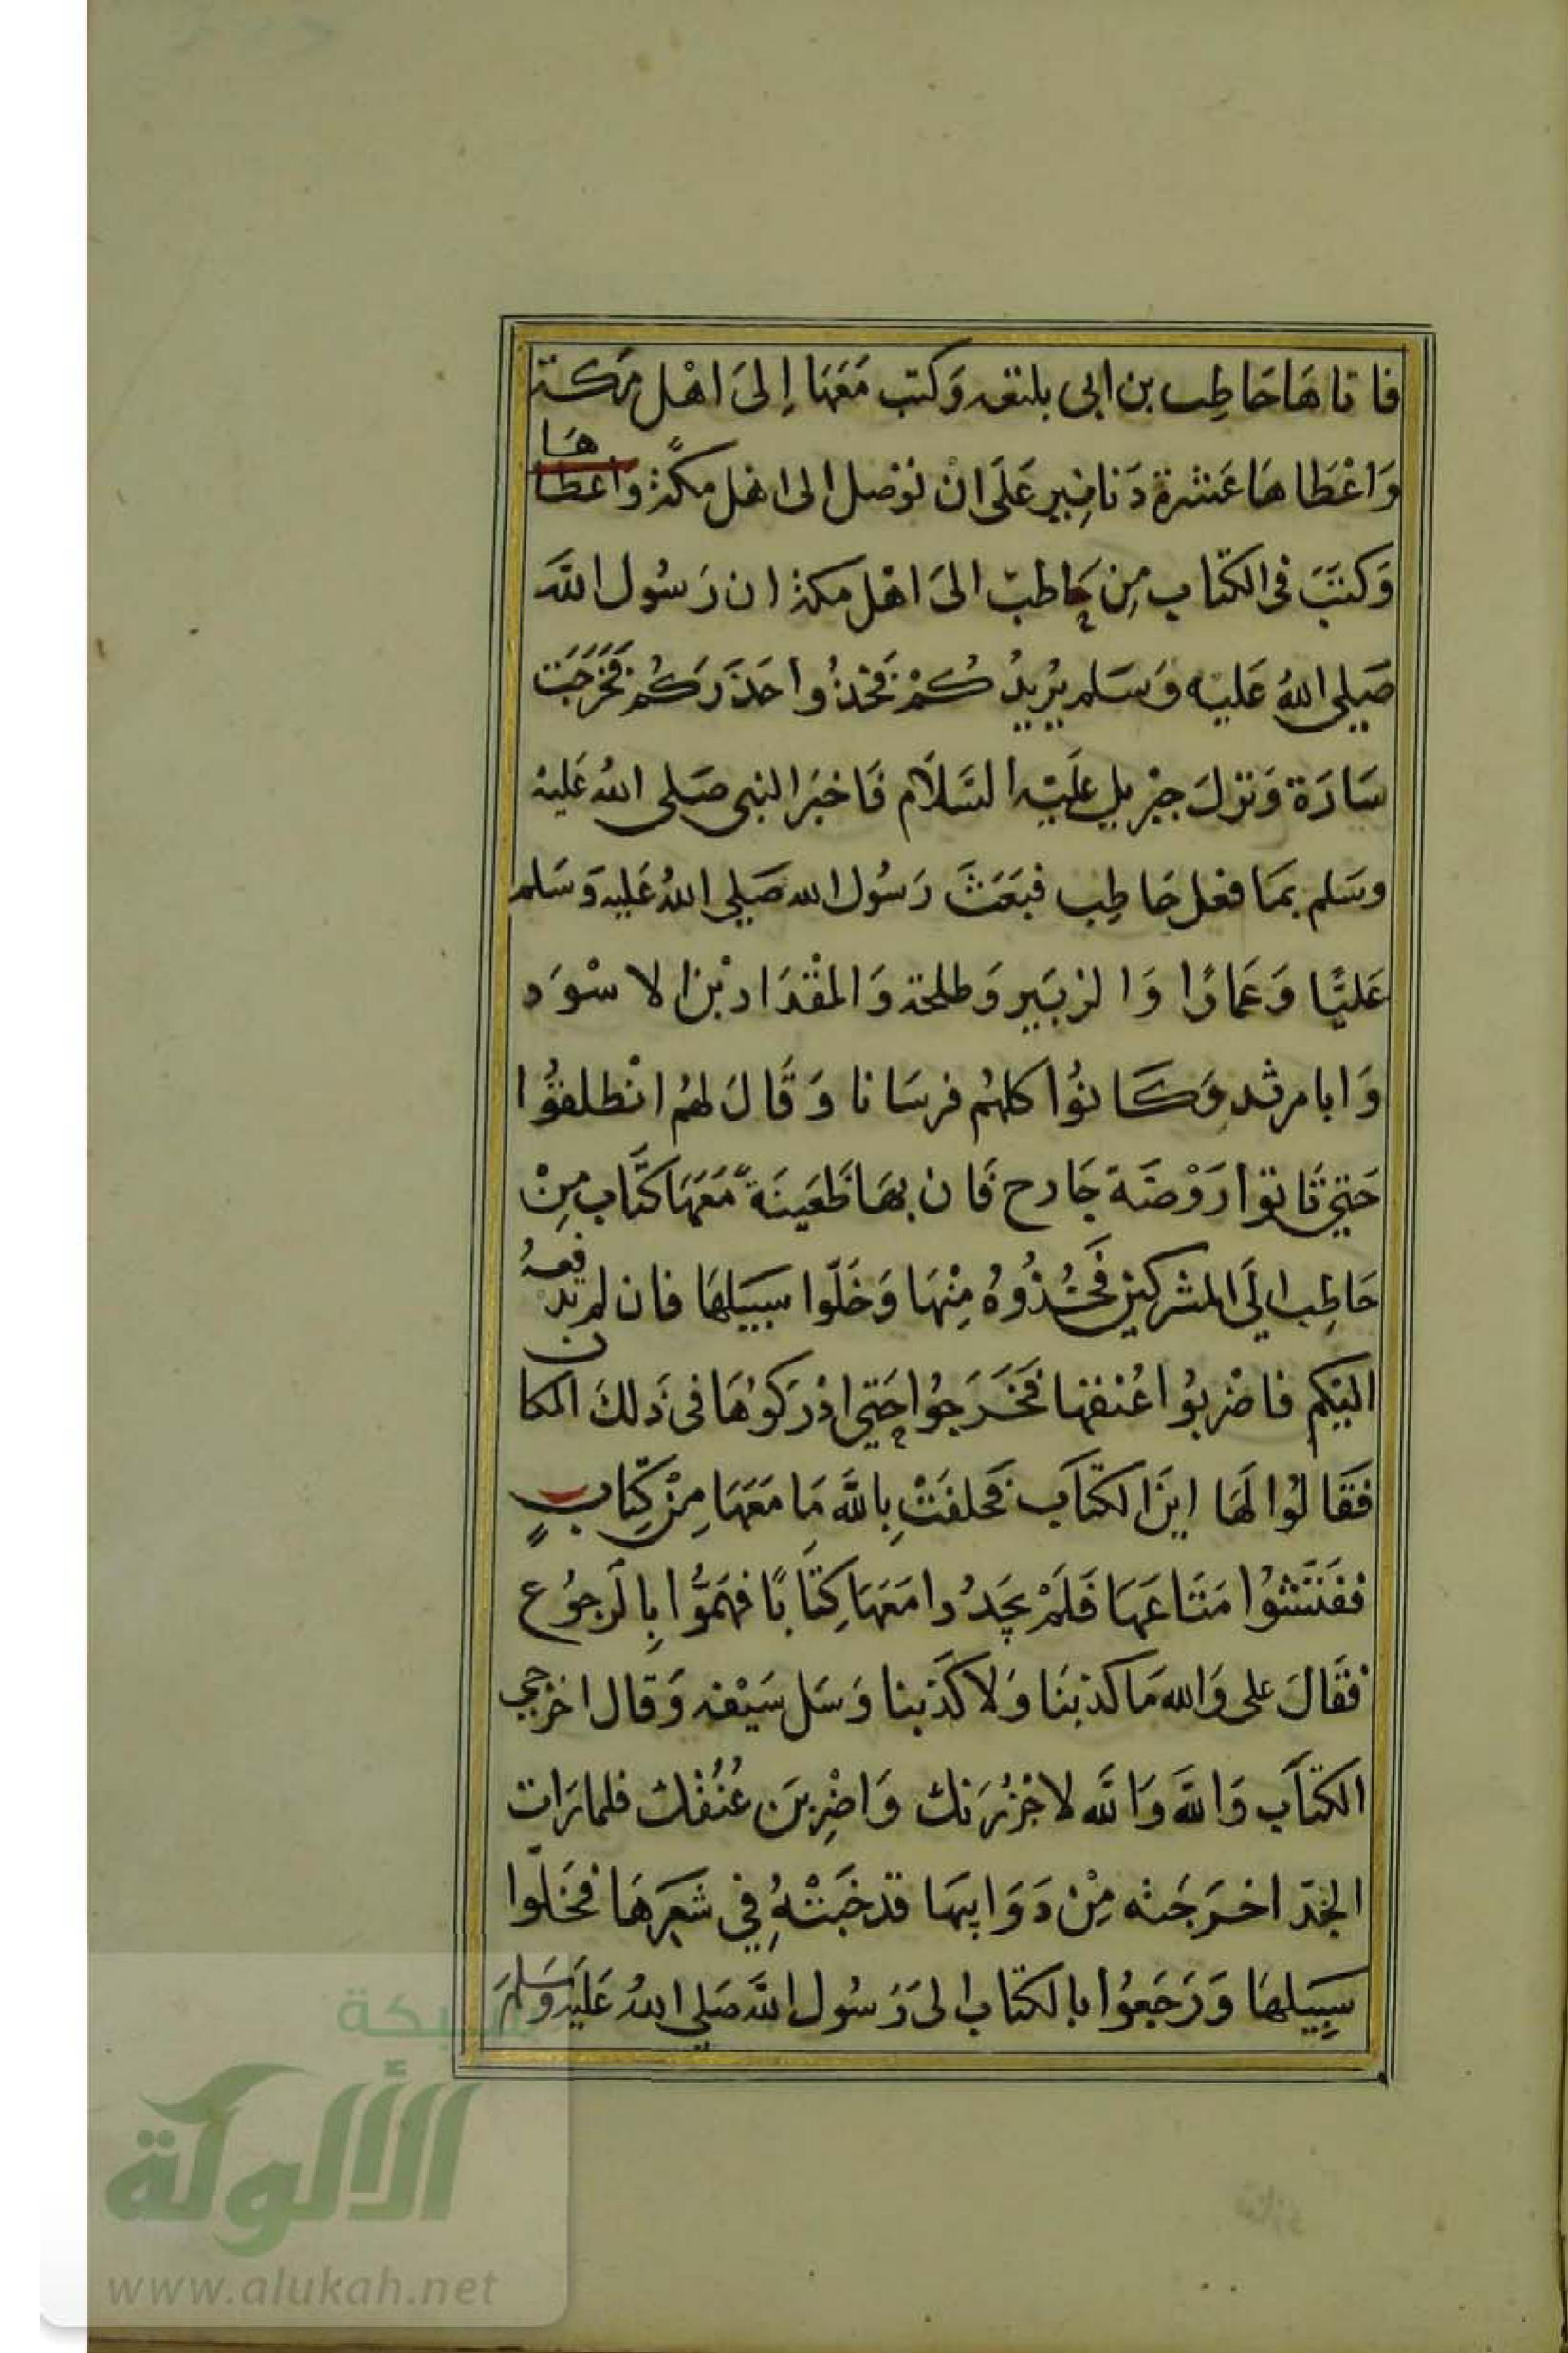 فَاتَاهَا حَاطِب بن ابى بلتعه وَكتب مَعَهَا إِلىَ اهْل مَكة
وَاعْطَاهَا عَشْرة دَنانِير عَلَى انْ تؤصل الى اهل مكةً واعطاهَا
وَكتبَ فى الكتاب مِن حَاطب الىَ اهْل مكة ان رَسُول اللَّه
صَلى اللهُ عَليْه وَسَلم يُرِيدُ كُمْ فَخذُوا حَذَرَكُم فَخَرَجَت
سَارَة وَنزلَ جِبْريل عَلَيْه السَّلَام فَاخبَرَ النبى صَلى اللهُ عَليْه
وسَلم بمَا فعل حَاطِب فبَعَثَ رَسُول الله صَلي اللهُ عَليه وَسَلم
عَليًّا وَعَمارًا وَالزبَير وَطلحة وَالمقْدَاد بْن الاسْوَد
وَابا مرثد وَكَانوُا كلهُم فرسَانا وَقَالَ لهُم انْطلقوُا
حَتي تَاتوا رَوْضَة جَارح فَان بهَا ظَعَينَةً مَعَهَا كتَاب مِنْ
حَاطِب الَى المشركين فَخُذُوُهُ مِنْهَا وَخَلّوا سبيَلهَا فان لم تدفعهُ
اليَكم فاضْربوُا عُنقها فَخَرَجوُا حَتي ادْرَكوُهَا فى ذَلكَ المكان
فَقَالوُا لَهَا اينَ الكتَاب فَحلفَتْ بِاللَّه مَا مَعَهَا مِنْ كِتَابٍ
ففَتَّشوُا مَتَاعَهَا فَلَمْ يجَدُوا مَعَهَا كِتَابًا فهَمَوُّا بِالرجوُع
فقَالَ على وَالله مَا كذبنَا وَلَا كَذَبنا وَسَل سَيْفه وَقال اخرجى
الكتَاب وَاللَّه وَاللَّه لاجْزُرَنك وَاضْرِبَن عُنُقُك فلما رَات
الجَدّ اخرَجَته مِنْ ذَوَايبهَا قد خَبَتْهُ فِي شعَرهَا فخَلّوا
سِبيَلهَا وَرَجَعوُا بالكتاب الىَ رَسُول اللَّه صَلي اللهُ عَلَيْه وسَلمَ
شبكة
الألوكة
www.alukah.net